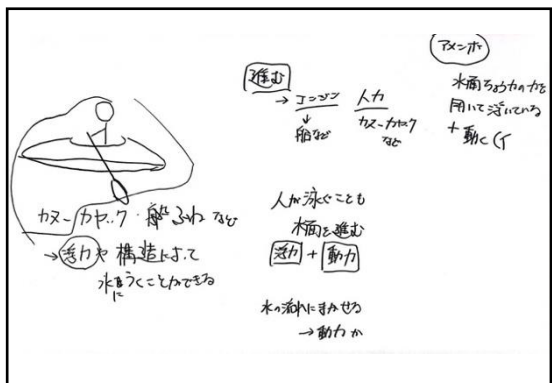 アメンボ
水面ちょう力の力を
用いて浮いている
+ 動く
進む
→ エンジン 人力
↓
船など
カヌーカヤック
など
カヌー/カヤック・船ふね など
→浮力や構造によって
水にうくことができる
人が泳ぐことも
水面を進む
浮力 + 動力
水の流れにまかせる
→ 動力か